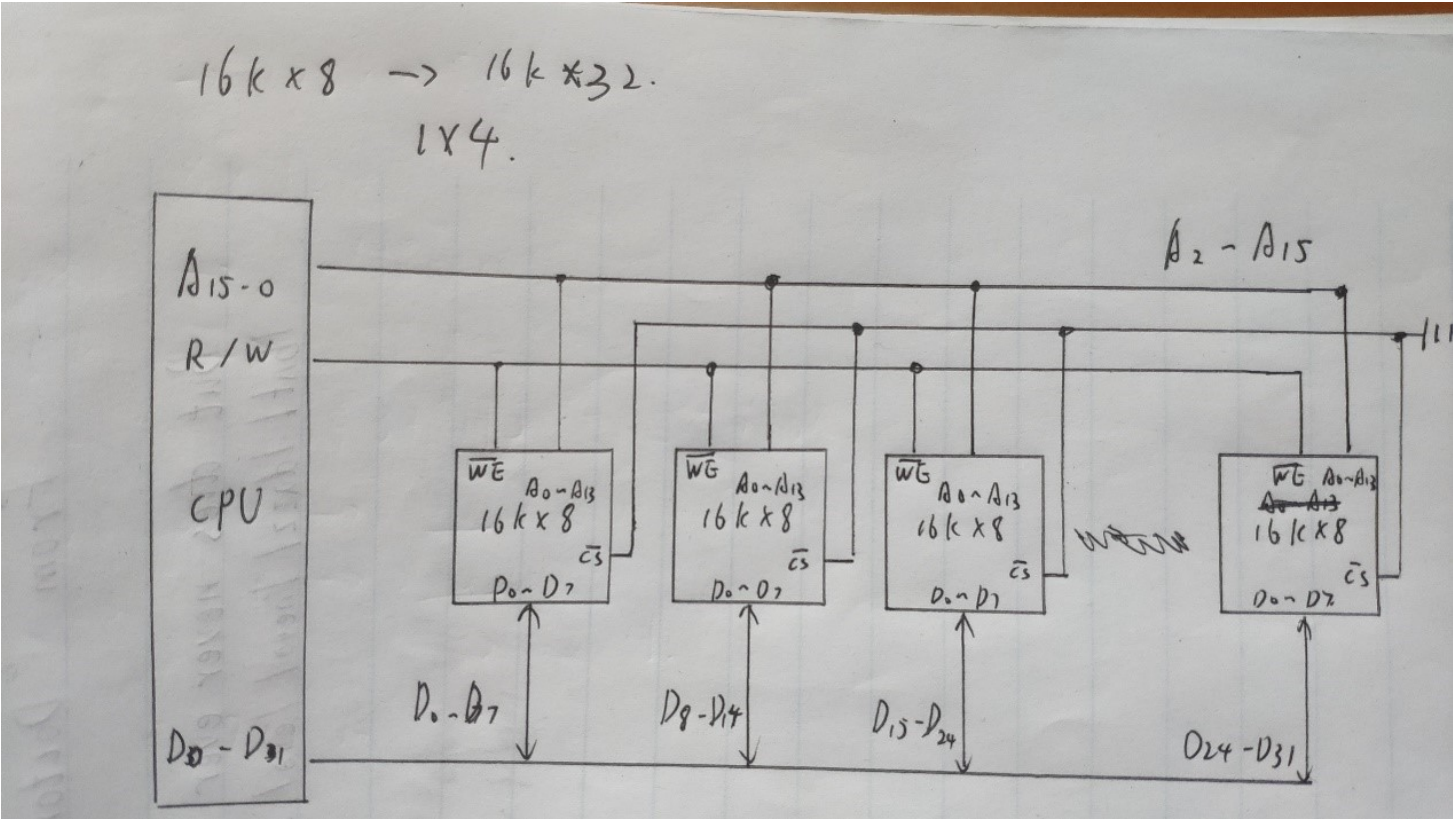 16k×8 → 16k*32.
1×4.
A2 - A15
A15-0
R/W
CPU
D0 - D31
WE
A0~A13
16k×8
CS
D0~D7
WE
A0~A13
16k×8
CS
D0~D7
WE
A0~A13
16k×8
CS
D0~D7
WE A0~A13
16k×8
CS
D0~D7
D0~D7
D8-D14
D15-D24
D24-D31